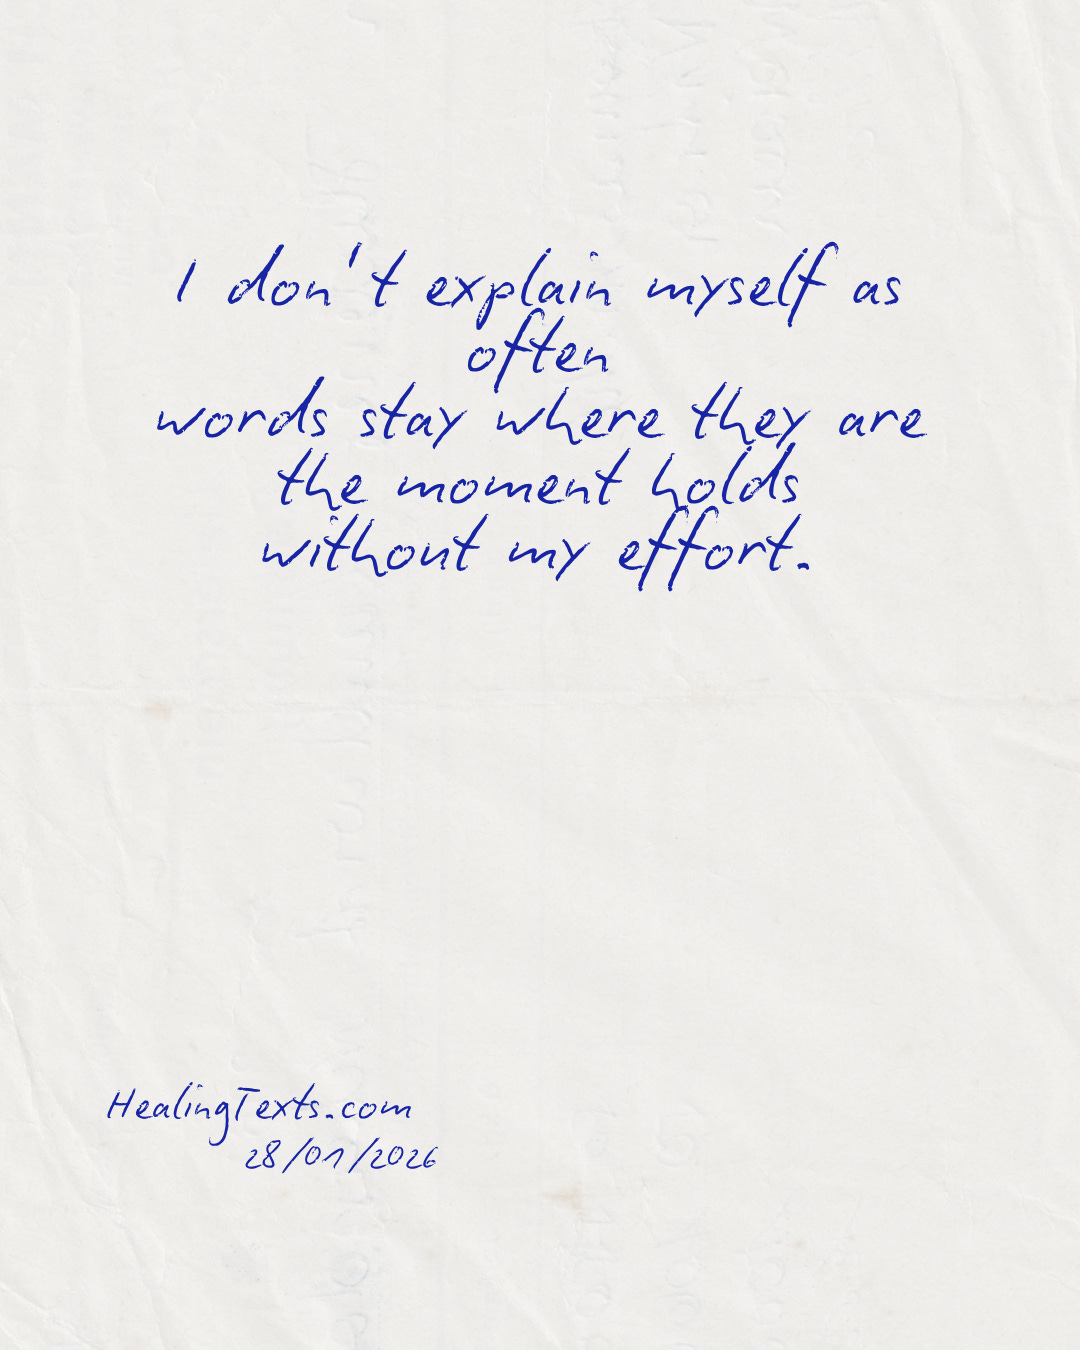 I don't explain myself as
often
words stay where they are
the moment holds
without my effort.
HealingTexts.com
28/01/2026